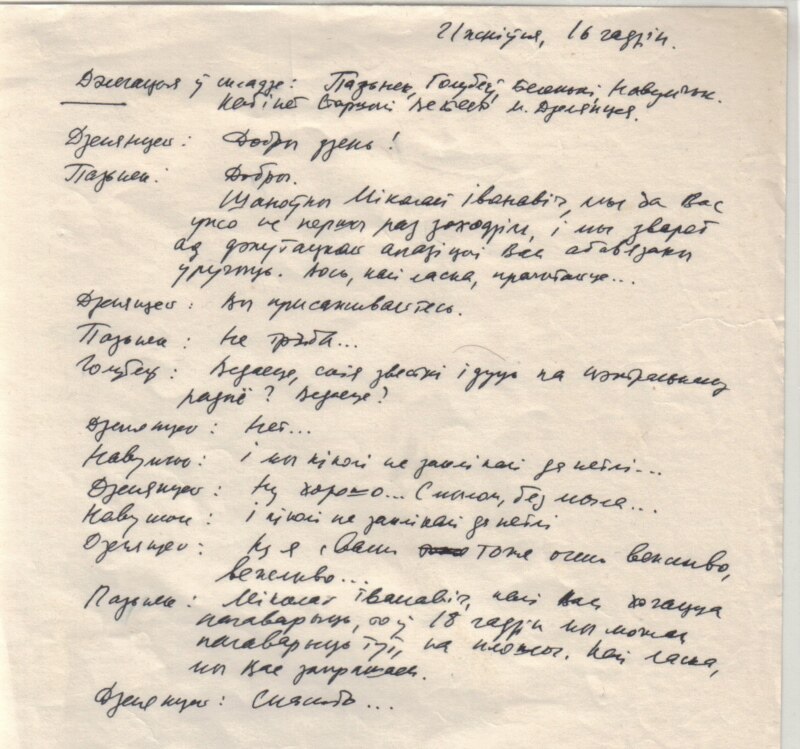 21 жніўня, 16 гадзін.
Дэлегацыя ў складзе: Пазьняк, Голубеў, Беленькі, Навумчык.
Кабінет Старшыні М. Дземянцея.
Дземянцей: Добры дзень!
Пазьняк: Добры.
Шаноўны Мікалай Іванавіч, мы да Вас
ужо не першы раз заходзім, і мы зварот
ад дэпутацкай апазіцыі Вам абавязаны
уручыць. Вось, калі ласка, прачытайце...
Дземянцей: Вы присаживайтесь.
Пазьняк: Не трэба...
Голубеў: Ведаеце, якія звесткі ідуць па цэнтральнаму
радыё? Ведаеце?
Дземянцей: Нет...
Навумчык: І мы ніколі не заклікалі да петлі...
Дземянцей: Ну хорошо... С мылом, без мыла...
Навумчык: І ніколі не заклікалі да петлі
Дземянцей: Ну я с Вами тоже очень вежливо,
вежливо...
Пазьняк: Мікалай Іванавіч, калі Вам хочацца
пагаварыць, то ў 18 гадзін мы можам
пагаварыць тут, на плошчы. Калі ласка,
мы Вас запрашаем.
Дземянцей: Спасибо...